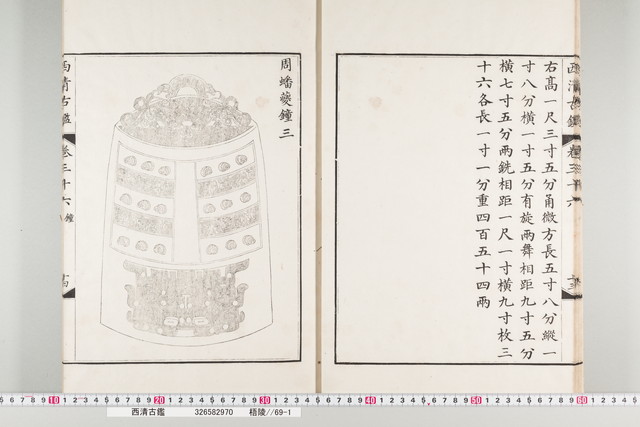 右高一尺三寸五分甬微方長五寸八分縱一
寸八分橫一寸五分有旋兩舞相距九寸五分
橫七寸五分兩銑相距一尺一寸橫九寸枚三
十六各長一寸一分重四百五十四兩
西清古鑑
卷三十六
周蟠夔鐘三
西清古鑑
卷三十六
鐘
10
20
30
40
50
60
西清古鑑 326582970 梧陵//69-1